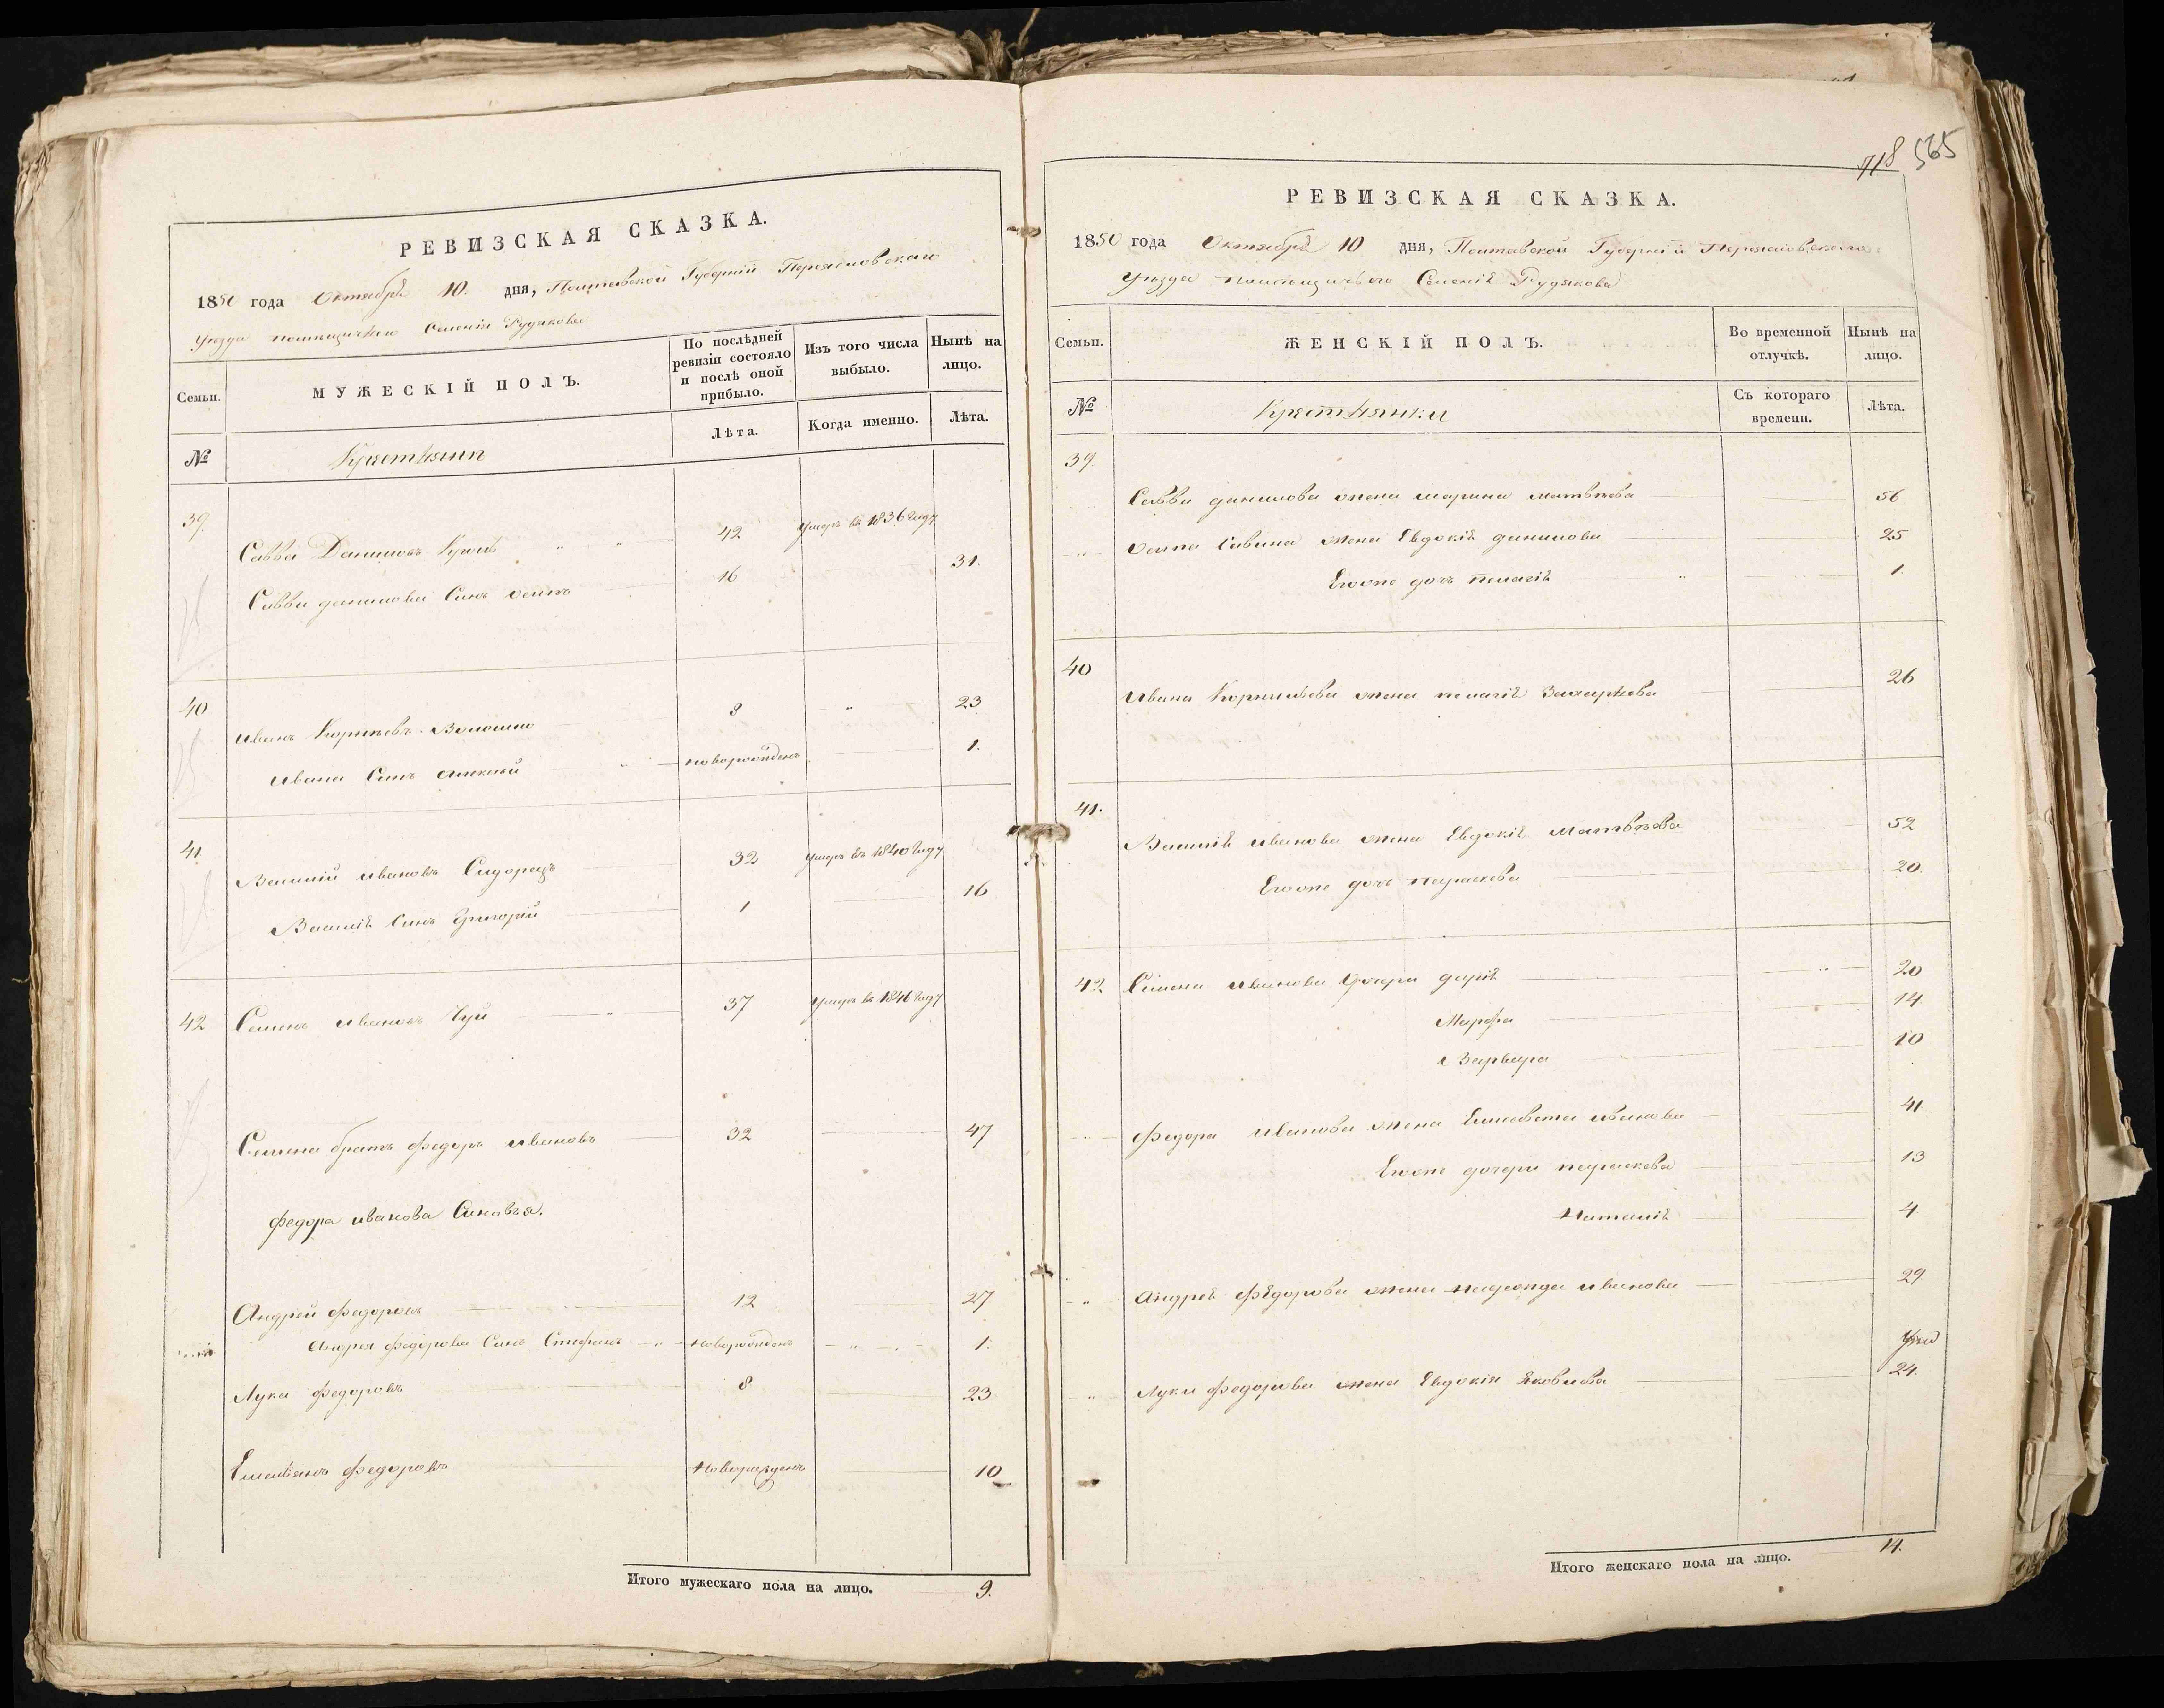 РЕВИЗСКАЯ СКАЗКА.
1850 года Октября 10. дня, Полтавской Губерніи Переясловскаго
Уезда помещичьего Селенія Рудякова
Семьи.
МУЖЕСКІЙ ПОЛЪ.
По послѣдней ревизіи состояло и послѣ оной прибыло.
Изъ того числа выбыло.
Нынѣ на лицо.
№
Крестьяне
Лѣта.
Когда именно.
Лѣта.
39.
Савва Даниловъ 42 умеръ въ 1836 году
Саввы данилова Синъ 16 31.
40
Иванъ 8 " 23
Ивана Синъ новорожденъ 1.
41
Василій Ивановъ Сидорецъ 32 умеръ въ 1840 году
Василія Синъ Григорій 1 16
42 Семенъ Ивановъ 37 умеръ въ 1846 году
Семена братъ Федоръ Ивановъ 32 47
Федора иванова Синовья.
Андрей Федоровъ 12 27
Андрея Федорова Синъ Стефанъ новорожденъ 1.
Лука Федоровъ 8 23
Емельянъ Федоровъ новорожденъ 10
Итого мужескаго пола на лицо. 9.
718 565
РЕВИЗСКАЯ СКАЗКА.
1850 года Октября 10 дня, Полтавской Губерніи Переясловскаго
Уезда помещичьего Селенія Рудякова
Семьи.
ЖЕНСКІЙ ПОЛЪ.
Во временной отлучкѣ.
Нынѣ на лицо.
№
Крестьянки
Съ котораго времени.
Лѣта.
39.
Саввы данилова жена марина матвѣева 56
Савина жена Евдокія данилова 25
Егоже дочь пелагія 1.
40
Ивана Корнильева жена пелагія 26
41.
Василія иванова жена Евдокія Матвѣева 52
Егоже дочь параскева 20.
42 Семена Иванова дочери дарія 20
Марфа 14
Варвара 10
Федора Иванова жена Елисавета иванова 41
Егоже дочери параскева 13
Наталія 4
Андрея Федорова жена иванова 29
" Луки Федорова жена Евдокія Яковлева 24.
Итого женскаго пола на лицо. 14.